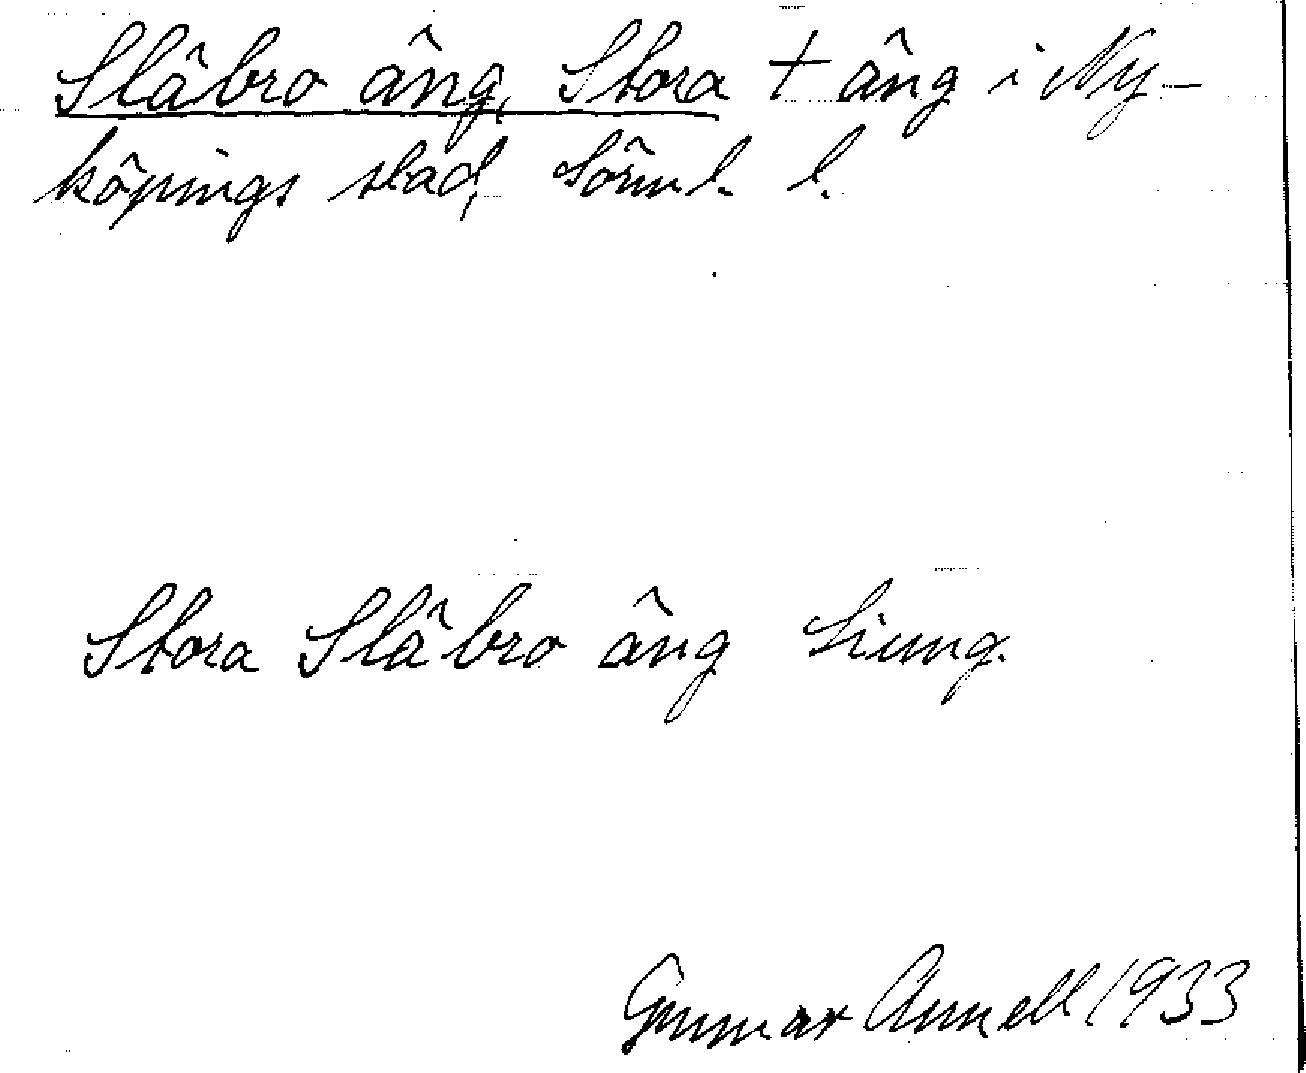 Släbro äng, Stora † äng i Ny-
köpings stad, Sörml. l.
Stora Släbro äng Liung.
Gunnar Annell 1933